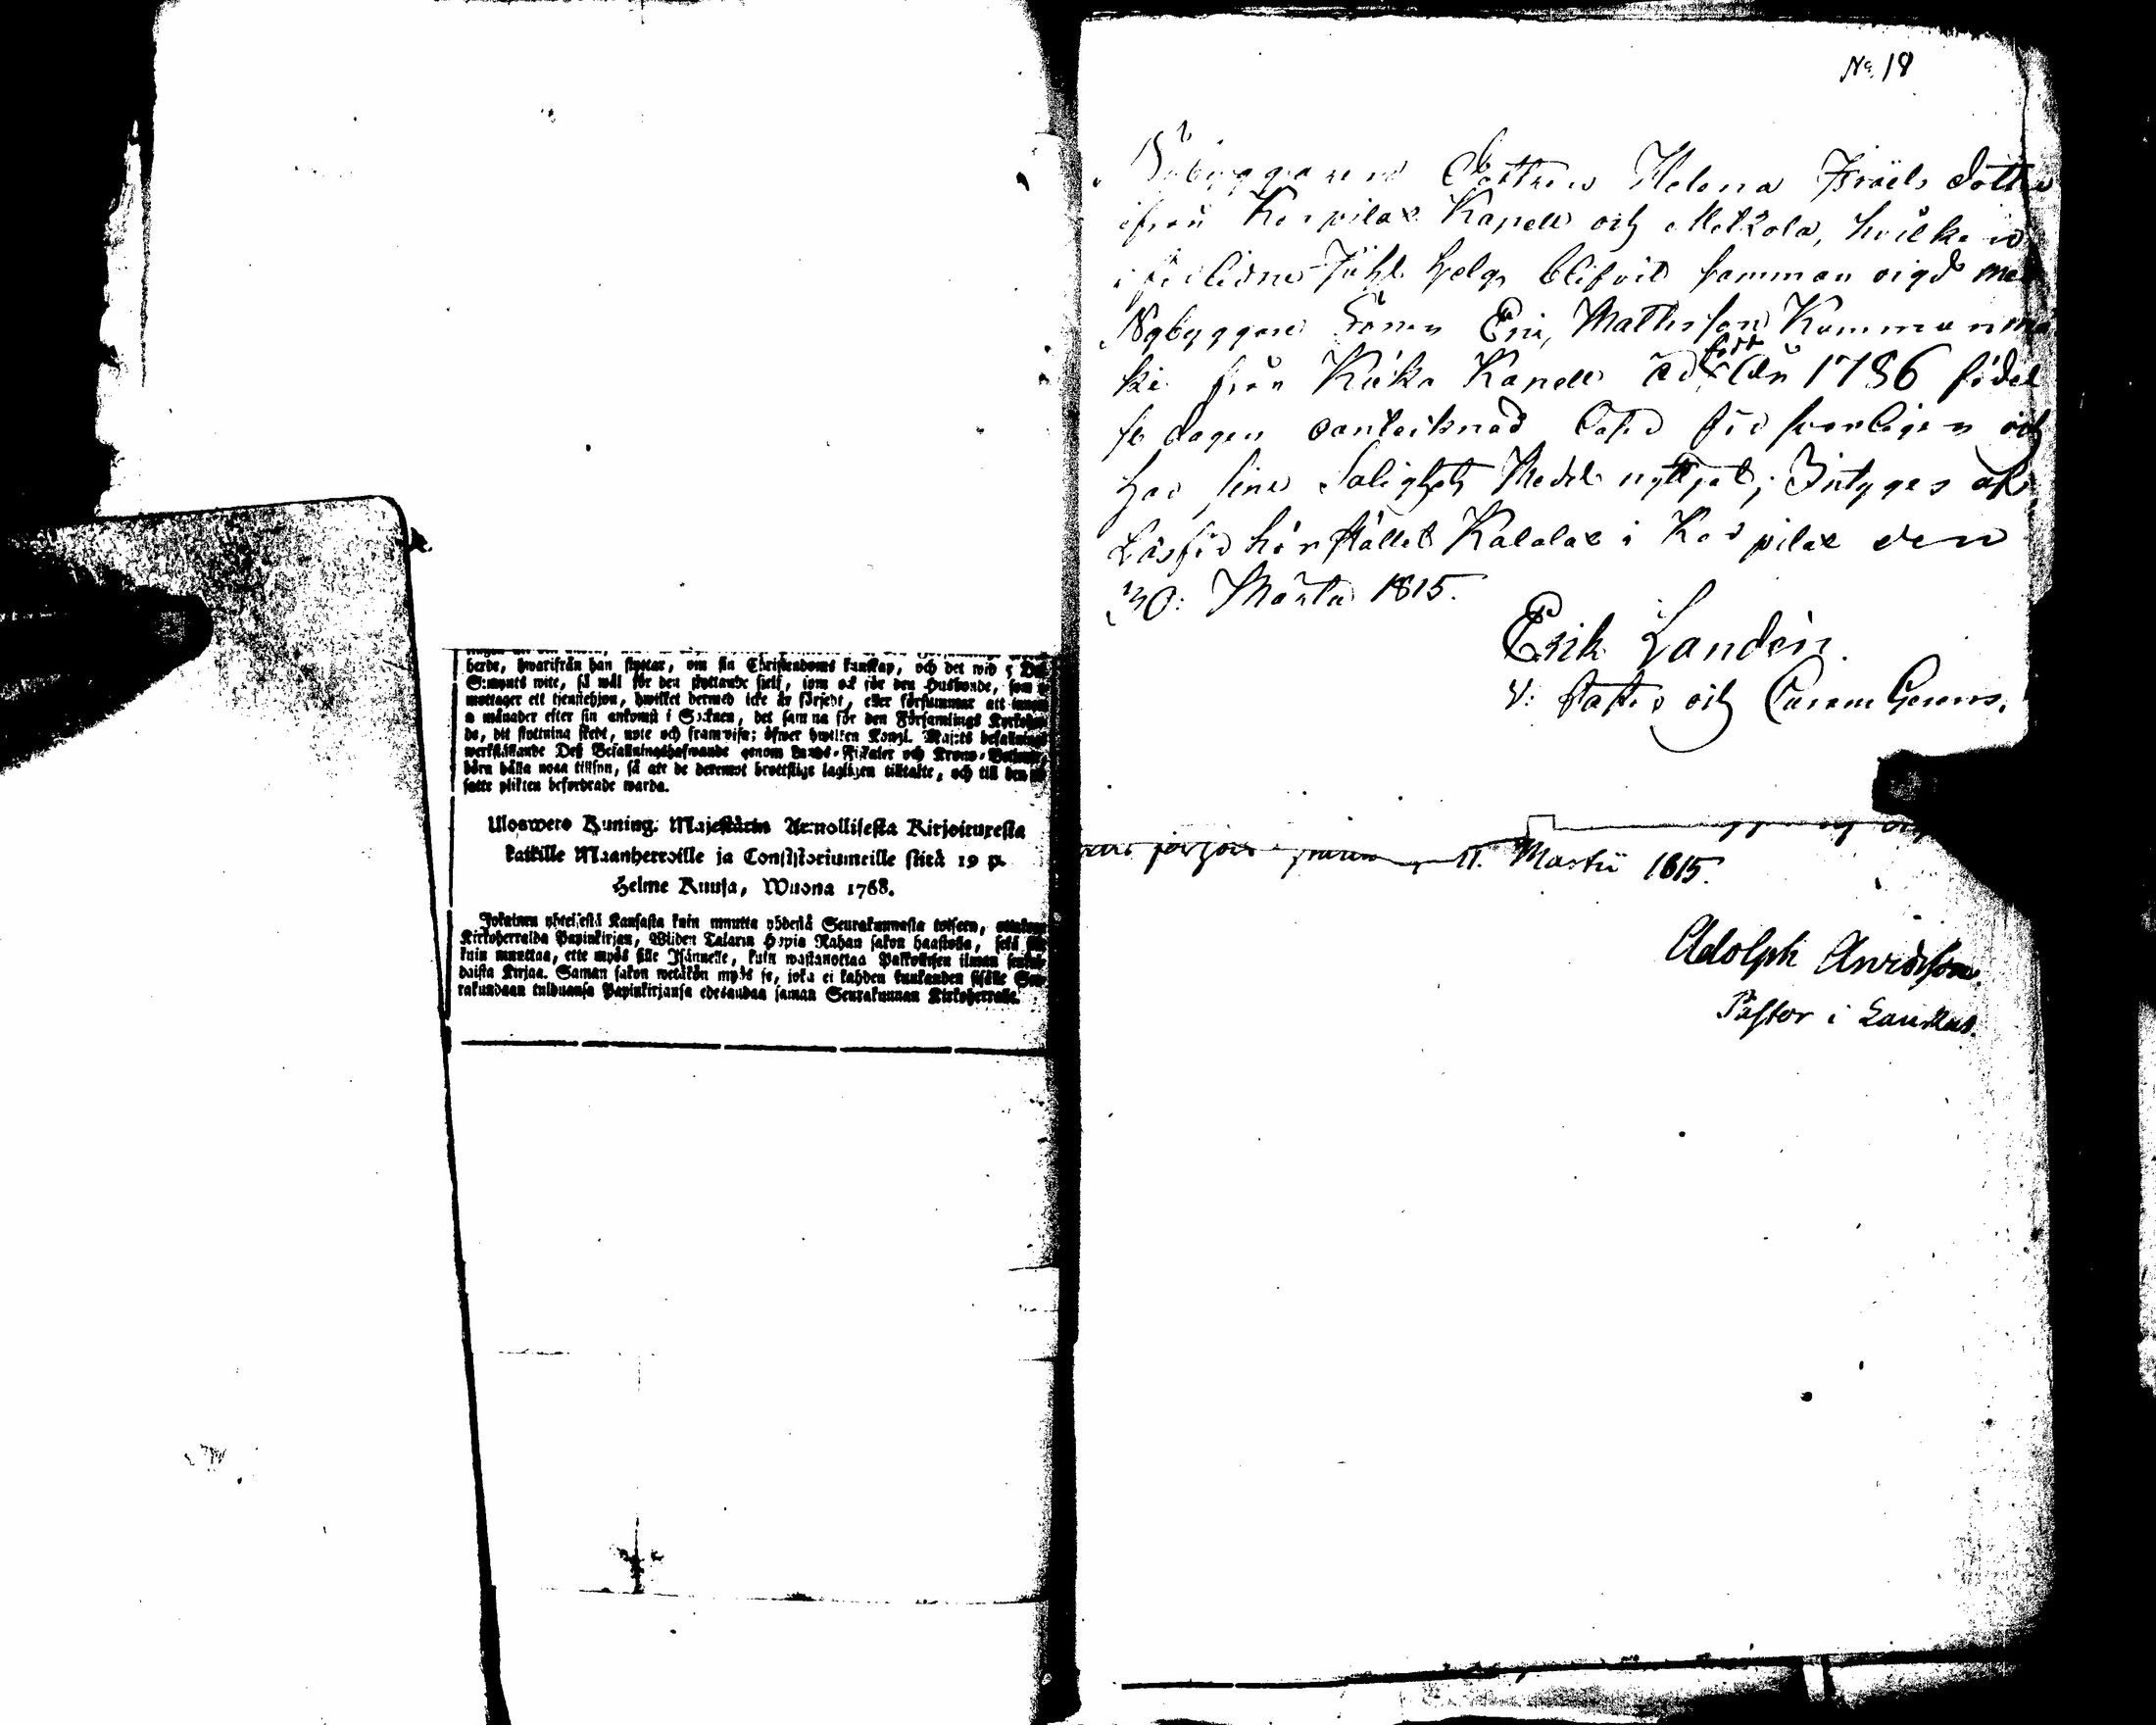 herde, hwarifrån han flyttar, om sin Christendoms kunskap, och det wid 5 Dal.
S:mynts wite, så wäl för den flyttande sjelf, som ock för den Husbonde, som
mottager ett tjenstehjon, hwilket dermed icke är försedt, eller försummar att innom
månader efter sin ankomst i Socknen, det samma för den Församlings Kyrkoher-
de, dit flyttning skedt, upte och framwisa; öfwer hwilken Kongl. Maj:ts befallnings
werkställande Deß Befallningshafwande genom Lands-Fiskaler och Krono-Betjente,
böra hålla noga tillsyn, så att de deremot brottslige lagligen tilltalte, och till den
satte plikten befordrade warda.
Ulosweto Kuning. Majestätin Armollisesta Kirjoituxesta
kaikille Maanherroille ja Consistoriumeille siitä 19 p.
Helme Kuusa, Wuona 1768.
Jokainen yhteisestä Kansasta kuin muutta yhdestä Seurakunnasta toiseen, ottakoon
Kirkoherralda Papinkirjan, Wiiden Talarin Hopia Rahan sakon haastolla, sekä
kuin muuttaa, ette myös sille Isännelle, kuin wastanottaa Palkollisen ilman
daista Kirjaa. Saman sakon wetäkön myös se, joka ei kahden kuukauden sisälle Seu-
rakundaan tulduansa Papinkirjansa edesandaa saman Seurakunnan Kirkoherralle.
No. 18
Nybyggaren Dottren Helena Isräels dotter
ifrån Korpilax Kapell och Mekola, hvilken
i förlidne Juhl helg blifvit samman vigd med
Nybyggare Sonen Eric Mattsson Kummunmä
ki från Kivko Kapell är född år 1786 födel
se dagen oanteiknad Läser försvarligen och
har sine Salighets Medel nyttjat; Intyges af
Läsförhörstället Kalalax i Korpilax den
30: Martii 1815.
Erik Landén.
V: Pastor och
11. Martii 1815.
Adolph Arvidsson.
Pastor i Laukas.